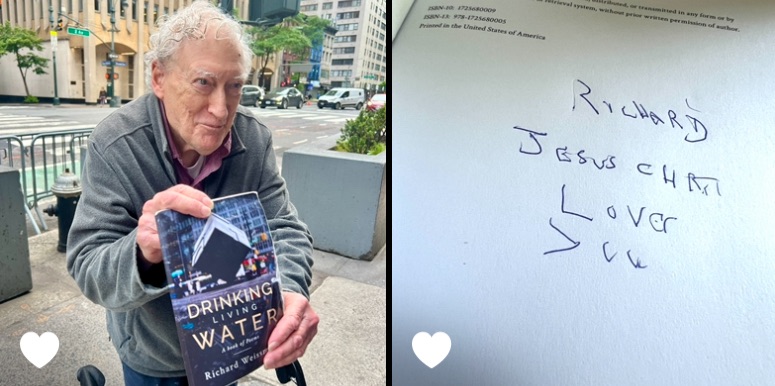 DRINKING
LIVING
WATER
A book of Poems
Richard
ISBN-10: 1725680009
distributed, or transmitted in any form or by
ISBN-13: 978-1725680005
retrieval system, without prior written permission of author.
Printed in the United States of America
RICHARD
JESUS CHRI
LOVES